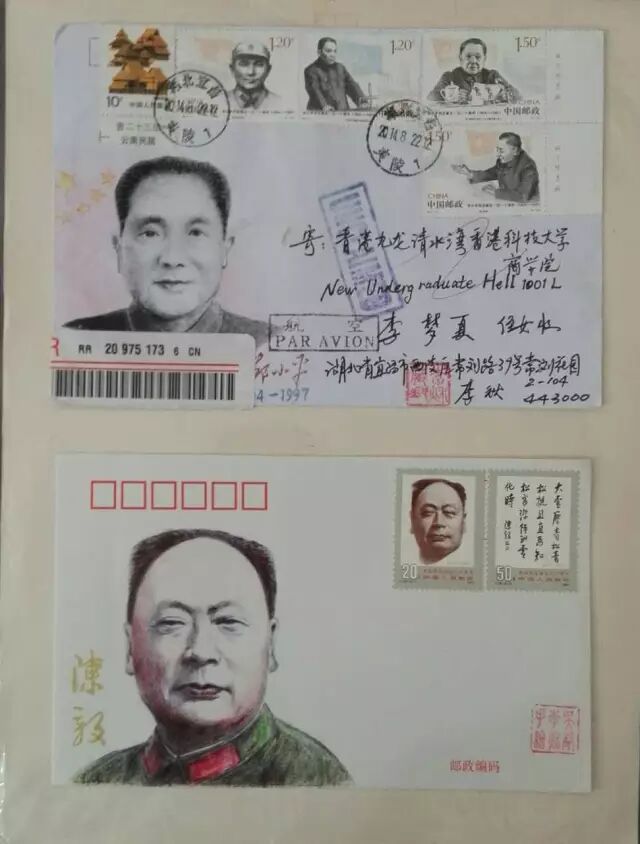 1.20元
1.20元
1.50元
CHINA
中国邮政
10分
2014.8.22.12
夷陵 1
2014.8.22.12
夷陵 1
1.50元
CHINA
中国邮政
云南民居
寄：香港九龙清水湾香港科技大学
商学院
New Undergraduate Hall 1001L
李 梦 夏
航 空
PAR AVION
R
RR 20 975 173 6 CN
邓小平
04-1997
湖北省宜昌市西陵区常刘路39号常刘花园
2-104
李秋
443000
20分
中国人民邮政
大雪压青松青
松挺且直要知
松高洁待到雪
化时 陈毅
50分
中国人民邮政
陈毅
邮政编码